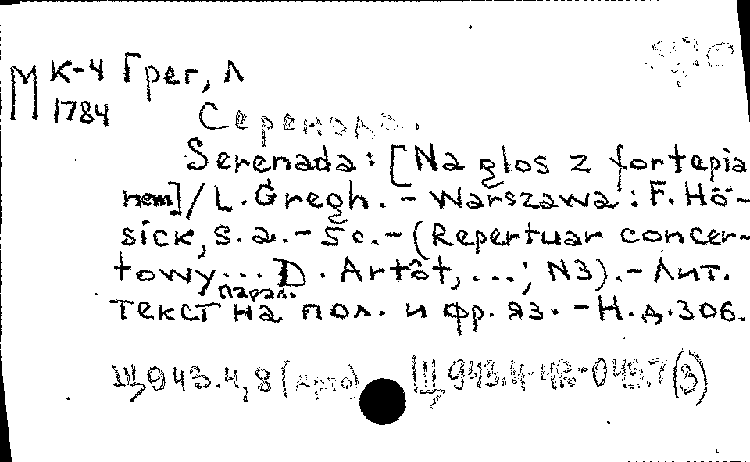 М К-4 Грег, Л
1784
Серенада.
Serenada: [Na glos z fortepia
nem]/L. Gregh. - Warszawa: F. Hö-
sick, s. a. - 5 c. - (Repertuar concer-
towy... D. Artôt, ...; N3). - Лит.
парал.
текст на пол. и фр. яз. - Н.д.306.
Щ943.4,8 Щ943.4-48-045.7(3)